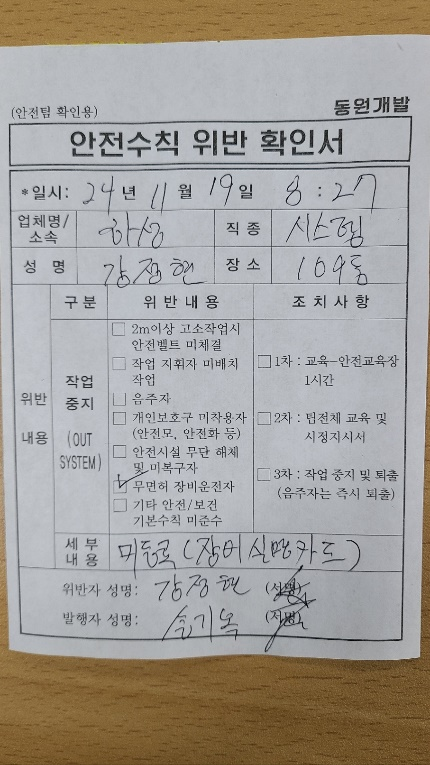 (안전팀 확인용)
동원개발
안전수칙 위반 확인서
*일시: 24년 11월 19일 8:27
업체명/소속 하상 직종 시스템
성 명 강정현 장소 109동
구분 위반내용 조치사항
위반 내용
작업 중지 (OUT SYSTEM)
2m이상 고소작업시
안전벨트 미체결
작업 지휘자 미배치
작업
음주자
개인보호구 미착용자
(안전모, 안전화 등)
안전시설 무단 해체
및 미복구자
무면허 장비운전자
기타 안전/보건
기본수칙 미준수
1차 : 교육-안전교육장
1시간
2차 : 팀전체 교육 및
시정지시서
3차 : 작업 중지 및 퇴출
(음주자는 즉시 퇴출)
세부 내용 미등록(장비실명카드)
위반자 성명: 강정현 (서명)
발행자 성명: 손기옥 (서명)